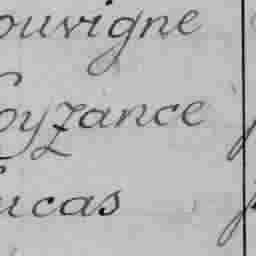 ouvigne
oyzance
ucas